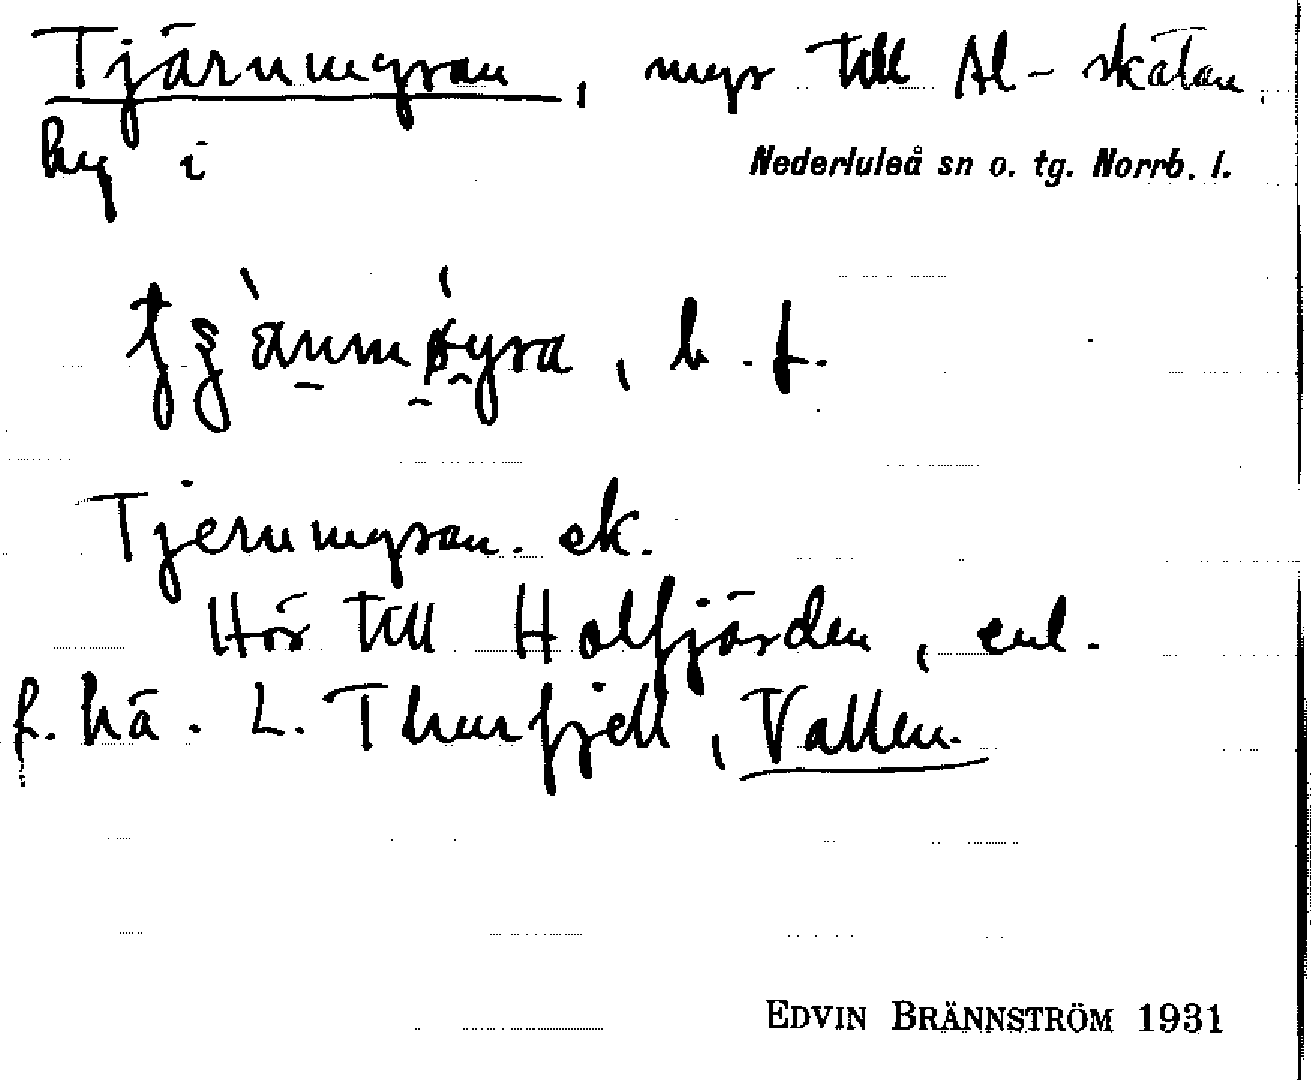 Tjärnmyran, myr till Al-skatan
by i
Nederluleå sn o. tg. Norrb. l.
, b. f.
Tjernmyran. ek.
Hör till Halfjärden, enl.
f. hä. L. Thurfjell, Vallen.
EDVIN BRÄNNSTRÖM 1931